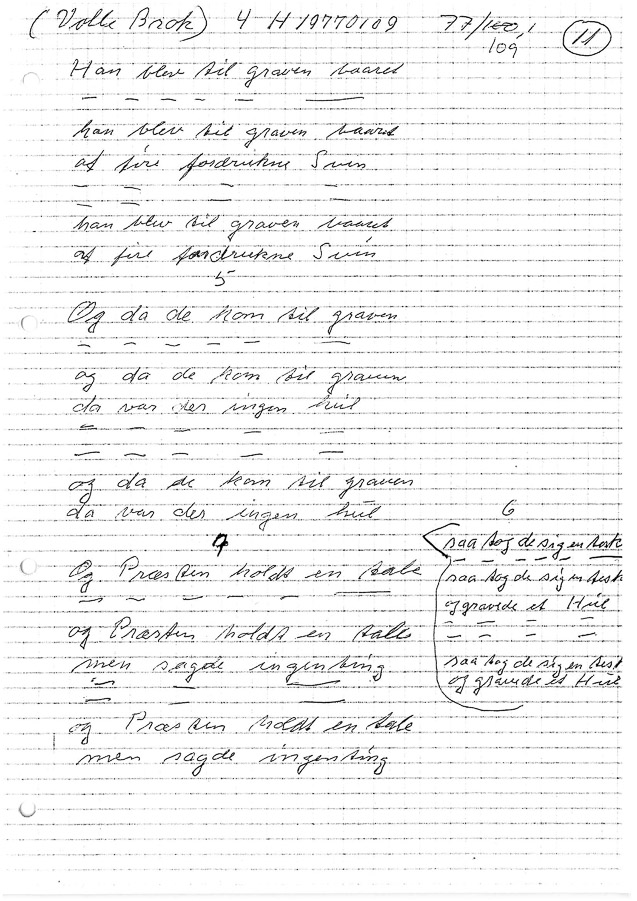 (Volle Brok) 4 H 19770109 77/100,1 11
109
Han blev til graven baaret
— — — — — —
han blev til graven baaret
af fire fordrukne Svin
— — — —
— — — —
han blev til graven baaret
af fire fordrukne Svin
5
Og da de kom til graven
— — — — — —
og da de kom til graven
da var der ingen hul
— — — — —
— — — — —
og da de kom til graven
da var der ingen hul
7
Og Præsten holdt en tale
— — — — — —
og Præsten holdt en tale
men sagde ingenting
— — —
— — —
og Præsten holdt en tale
men sagde ingenting
6
saa tog de sig en
— — — — — —
saa tog de sig en
og gravede et Hul
— — — —
— — — —
saa tog de sig en
og gravede et Hul